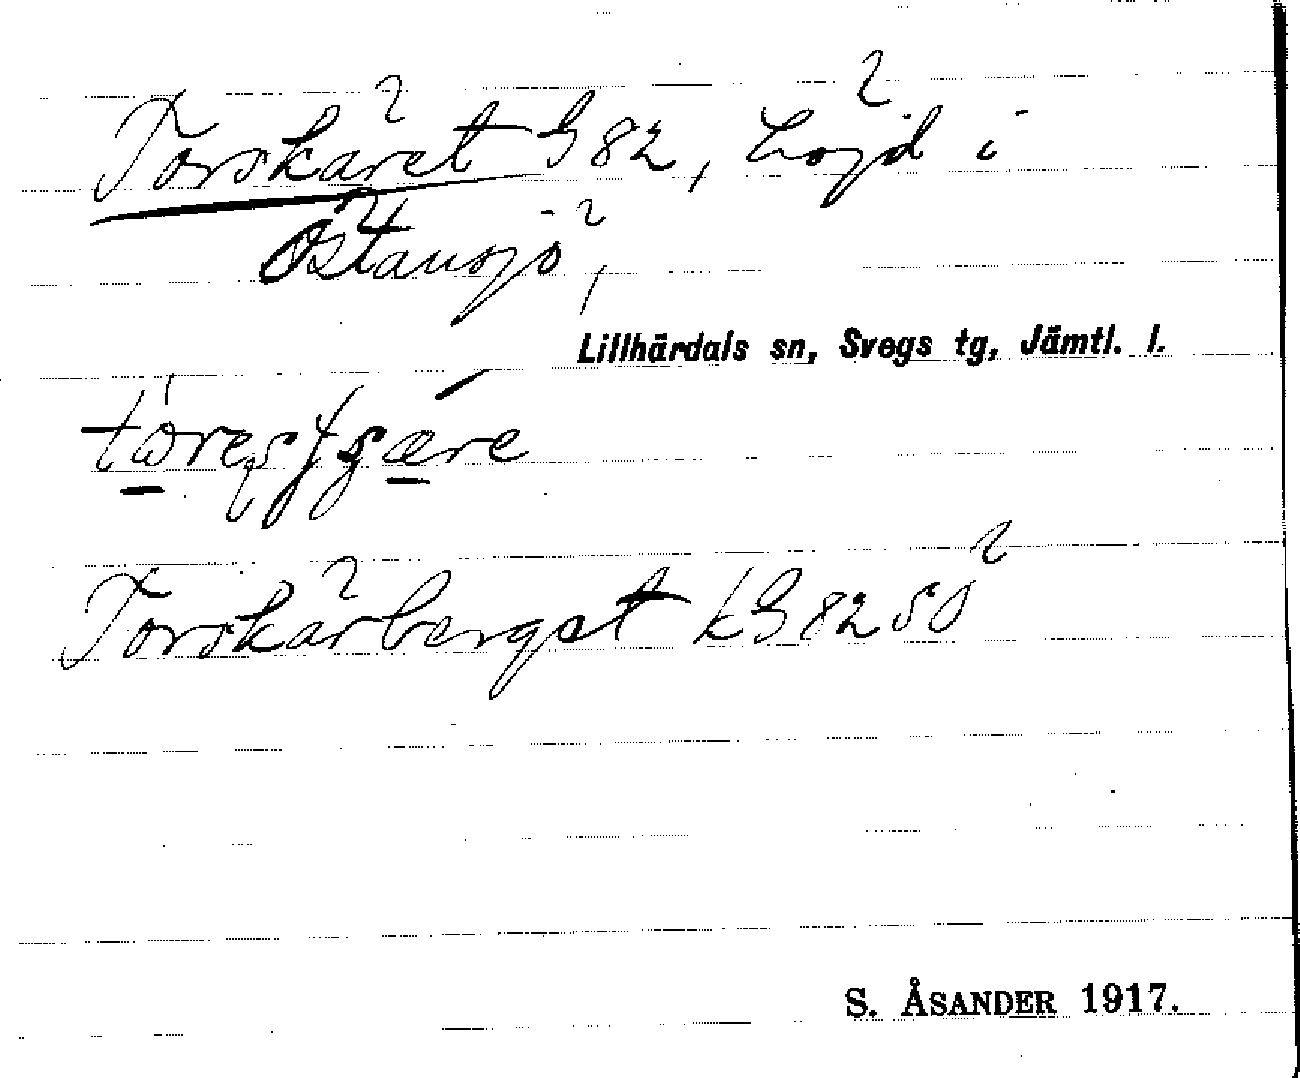 Torskäret G 82, höjd i
Östansjö,
Lillhärdals sn, Svegs tg, Jämtl. l.
Torskärberget kG 82 SO
S. ÅSANDER 1917.